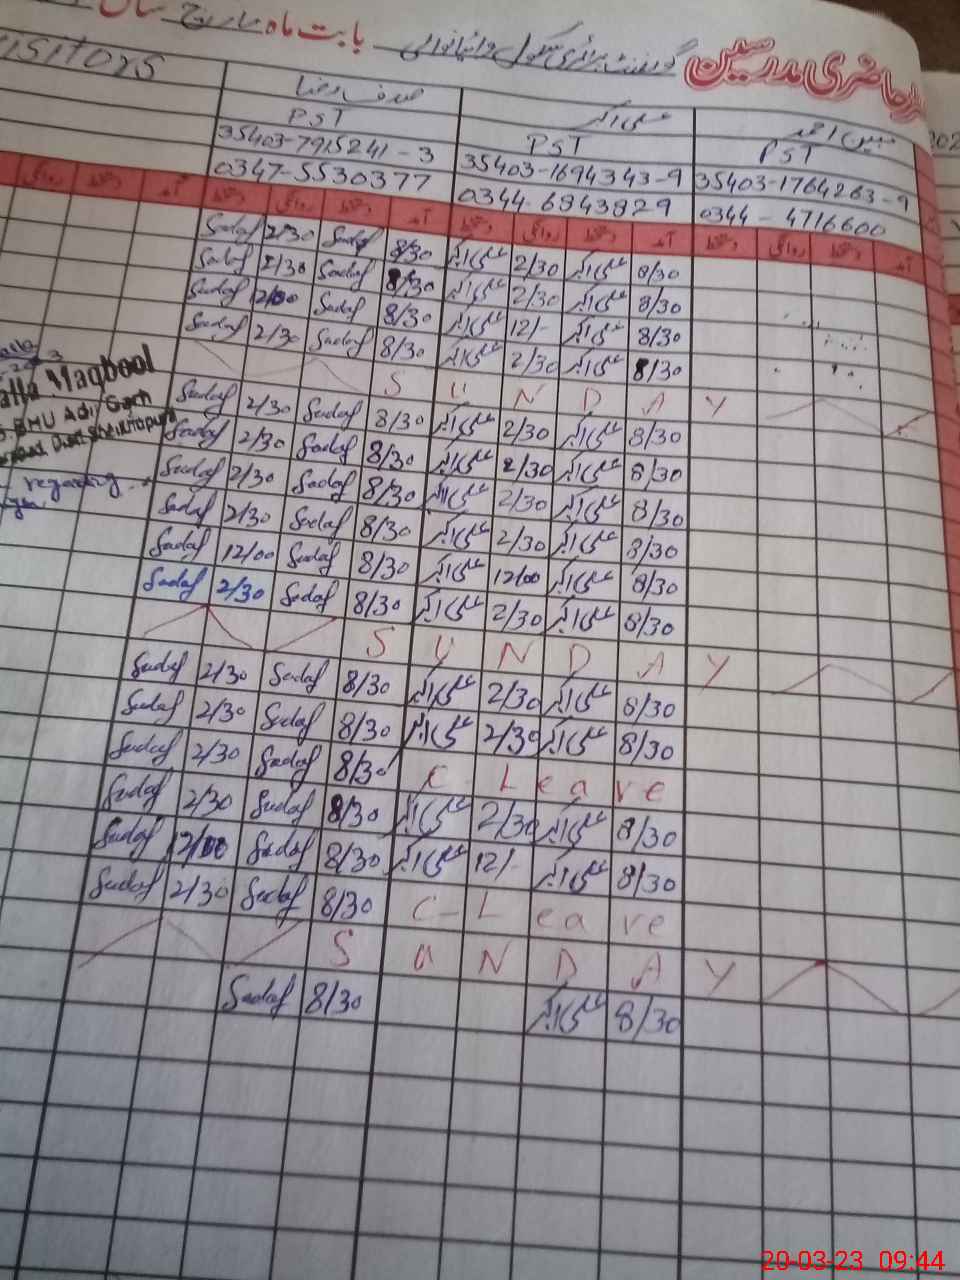 حاضری مدرسین گورنمنٹ پرائمری سکول بابت ماہ مارچ سال
VISITORS
صدف رضا علی اکبر مبین احمد
PST PST PST
35403-7915241-3 35403-1694343-9 35403-1764263-9
0347-5530377 0344-6843829 0344-4716600
دستخط روانگی دستخط آمد دستخط روانگی دستخط آمد دستخط روانگی دستخط آمد
Sadaf 2/30 Sadaf 8/30 علی اکبر 2/30 علی اکبر 8/30
Sadaf 2/30 Sadaf 8/30 علی اکبر 2/30 علی اکبر 8/30
Sadaf 12/00 Sadaf 8/30 علی اکبر 12/- علی اکبر 8/30
Sadaf 2/30 Sadaf 8/30 علی اکبر 2/30 علی اکبر 8/30
S U N D A Y
Sadaf 2/30 Sadaf 8/30 علی اکبر 2/30 علی اکبر 8/30
Sadaf 2/30 Sadaf 8/30 علی اکبر 2/30 علی اکبر 8/30
Sadaf 2/30 Sadaf 8/30 علی اکبر 2/30 علی اکبر 8/30
Sadaf 2/30 Sadaf 8/30 علی اکبر 2/30 علی اکبر 8/30
Sadaf 12/00 Sadaf 8/30 علی اکبر 12/00 علی اکبر 8/30
Sadaf 2/30 Sadaf 8/30 علی اکبر 2/30 علی اکبر 8/30
S U N D A Y
Sadaf 2/30 Sadaf 8/30 علی اکبر 2/30 علی اکبر 8/30
Sadaf 2/30 Sadaf 8/30 علی اکبر 2/30 علی اکبر 8/30
Sadaf 2/30 Sadaf 8/30 C-Leave
Sadaf 2/30 Sadaf 8/30 علی اکبر 2/30 علی اکبر 8/30
Sadaf 12/00 Sadaf 8/30 علی اکبر 12/- علی اکبر 8/30
Sadaf 2/30 Sadaf 8/30 C-Leave
S U N D A Y
Sadaf 8/30 علی اکبر 8/30
Maqbool
BHU
regarding
20-03-23 09:44